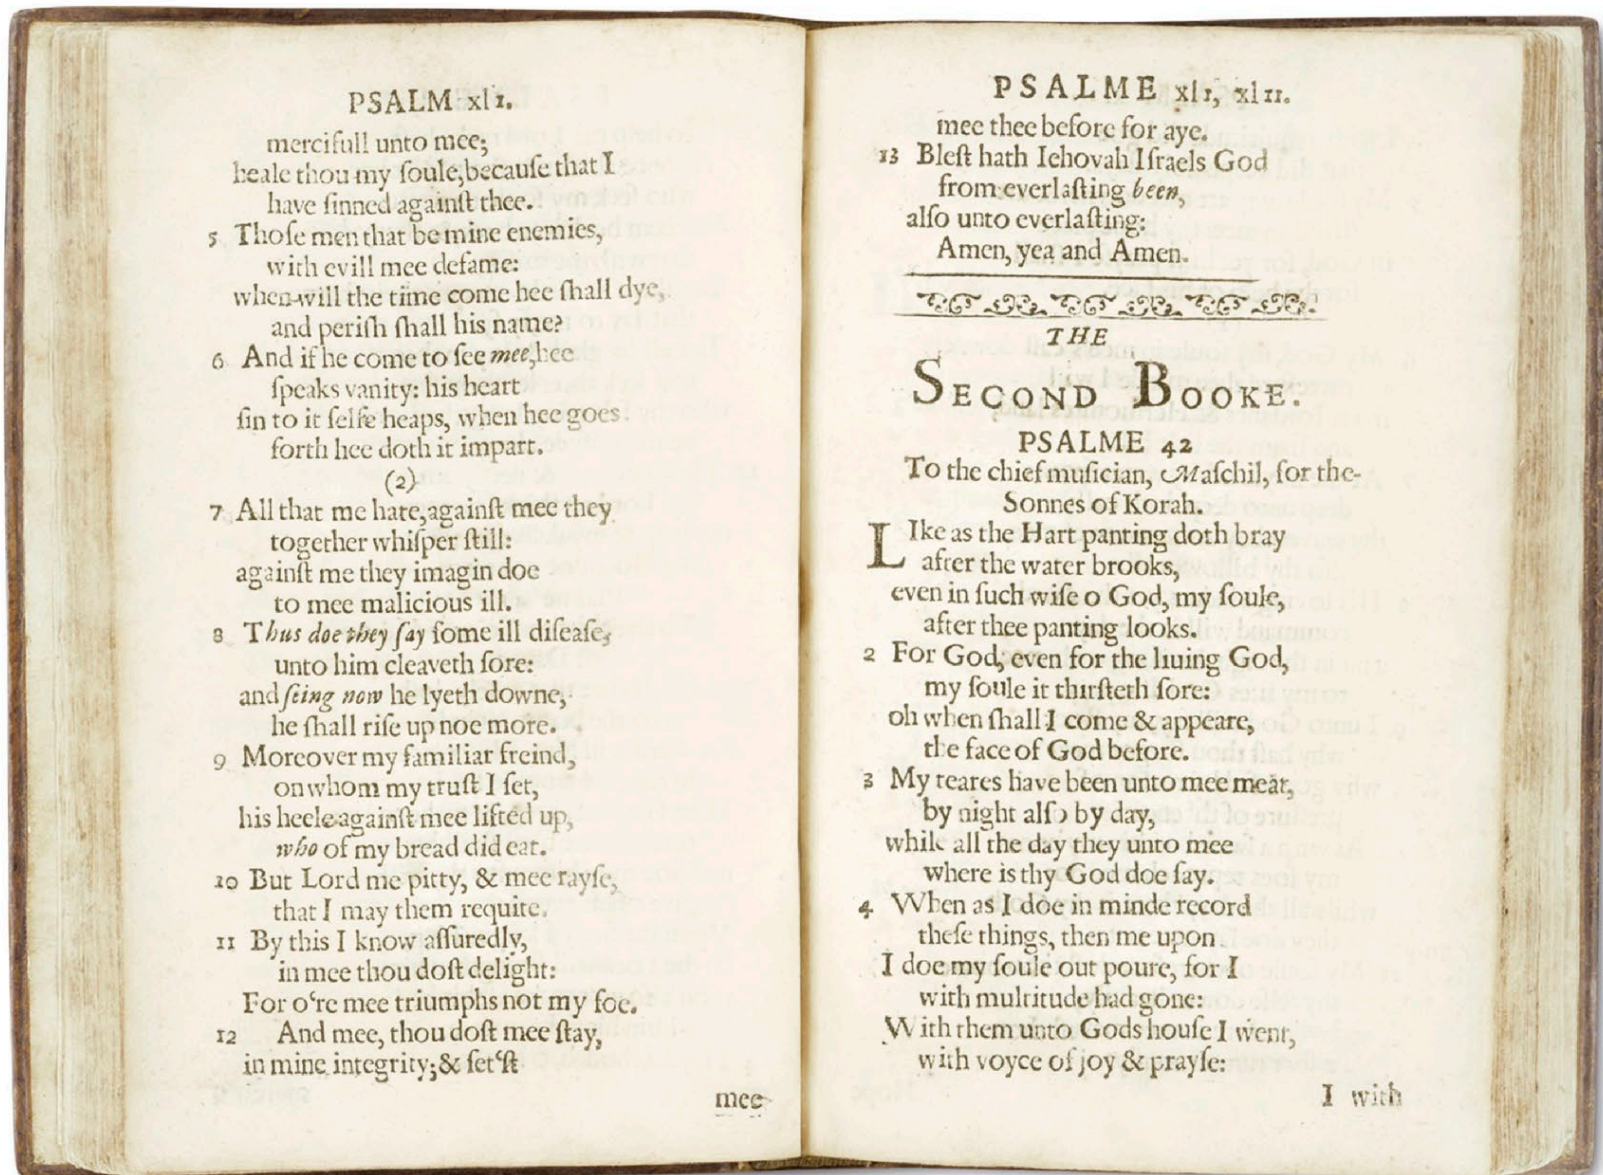 PSALM xlI.
mercifull unto mee;
heale thou my ſoule,becauſe that I
have ſinned againſt thee.
5 Thoſe men that be mine enemies,
with evill mee defame:
when will the time come hee ſhall dye,
and periſh ſhall his name?
6 And if he come to ſee mee,hee
ſpeaks vanity: his heart
ſin to it ſelfe heaps, when hee goes
forth hee doth it impart.
(2)
7 All that me hate,againſt mee they
together whiſper ſtill:
againſt me they imagin doe
to mee malicious ill.
8 Thus doe they ſay ſome ill diſeaſe,
unto him cleaveth ſore:
and ſeing now he lyeth downe,
he ſhall riſe up noe more.
9 Moreover my familiar freind,
on whom my truſt I ſet,
his heele againſt mee lifted up,
who of my bread did eat.
10 But Lord me pitty, & mee rayſe,
that I may them requite.
11 By this I know aſſuredly,
in mee thou doſt delight:
For o‘re mee triumphs not my foe.
12 And mee, thou doſt mee ſtay,
in mine integrity;& ſet‘ſt
mee
PSALME xlI, xlII.
mee thee before for aye.
13 Bleſt hath Iehovah Iſraels God
from everlaſting been,
alſo unto everlaſting:
Amen, yea and Amen.
THE
SECOND BOOKE.
PSALME 42
To the chief muſician, Maſchil, for the-
Sonnes of Korah.
LIke as the Hart panting doth bray
after the water brooks,
even in ſuch wiſe o God, my ſoule,
after thee panting looks.
2 For God, even for the liuing God,
my ſoule it thirſteth ſore:
oh when ſhall I come & appeare,
the face of God before.
3 My teares have been unto mee meat,
by night alſo by day,
while all the day they unto mee
where is thy God doe ſay.
4 When as I doe in minde record
theſe things, then me upon
I doe my ſoule out poure, for I
with multitude had gone:
With them unto Gods houſe I went,
with voyce of joy & prayſe:
I with